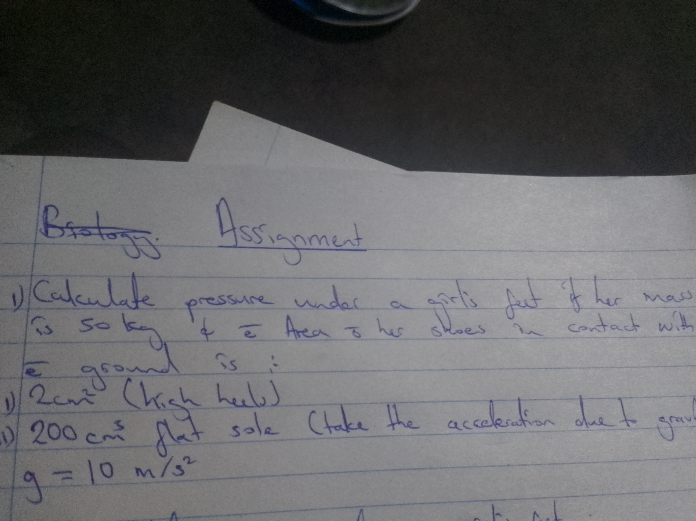 Biology. Assignment
1) Calculate pressure under a girl's feet if her mass
is 50 kg & ē Area ō her shoes in contact with
ē ground is :
i) 2cm² (high heels)
ii) 200 cm³ flat sole (take the acceleration due to
g = 10 m/s²